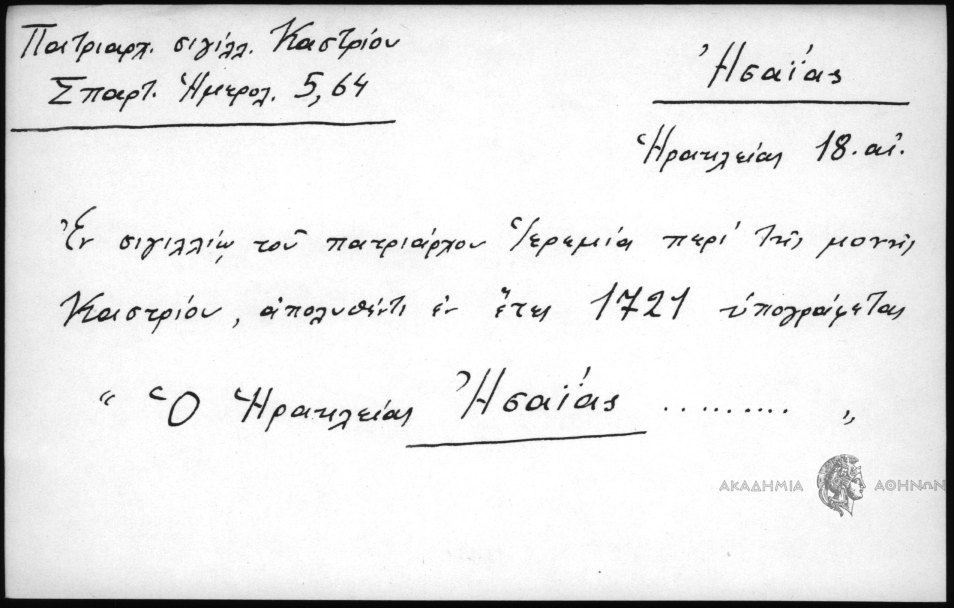 Πατριαρχ. σιγίλλ. Καστρίου
Σπαρτ. Ἡμερολ. 5, 64
Ἡσαΐας
Ἡρακλείας 18. αἰ.
Ἐν σιγιλλίῳ τοῦ πατριάρχου Ἱερεμία περί τῆς μονῆς
Καστρίου, ἀπολυθέντι ἐν ἔτει 1721 ὑπογράφεται
“ Ὁ Ἡρακλείας Ἡσαΐας .......... „
ΑΚΑΔΗΜΙΑ ΑΘΗΝΩΝ